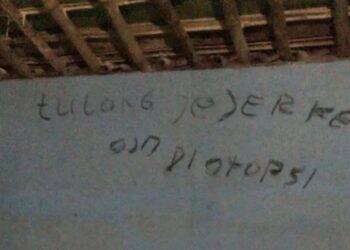 tulanG JeJER KE
DAN DI OtOPSI